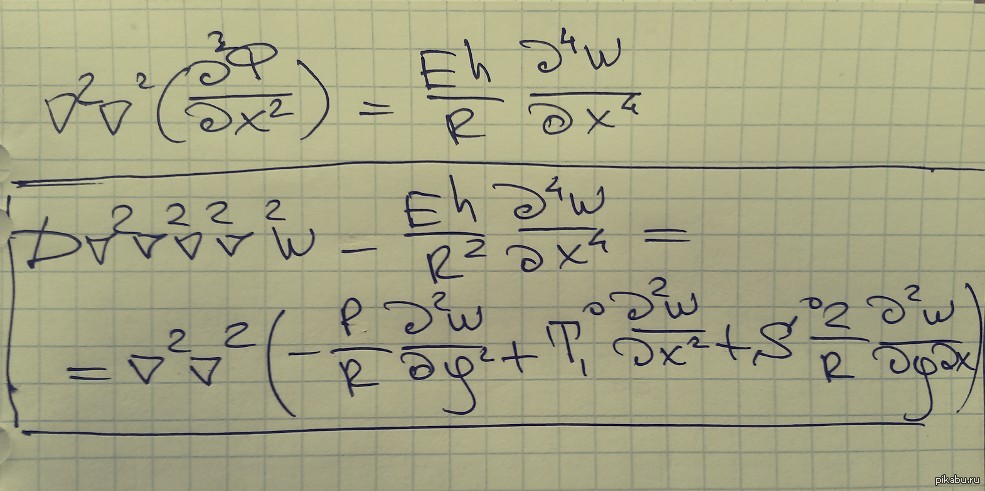 ∇²∇²(∂²Φ/∂x²) = Eh/R ∂⁴w/∂x⁴
D∇²∇²∇²∇²w − Eh/R² ∂⁴w/∂x⁴ =
= ∇²∇²(−P/R ∂²w/∂φ² + T₁⁰ ∂²w/∂x² + S⁰ 2/R ∂²w/∂φ∂x)
pikabu.ru